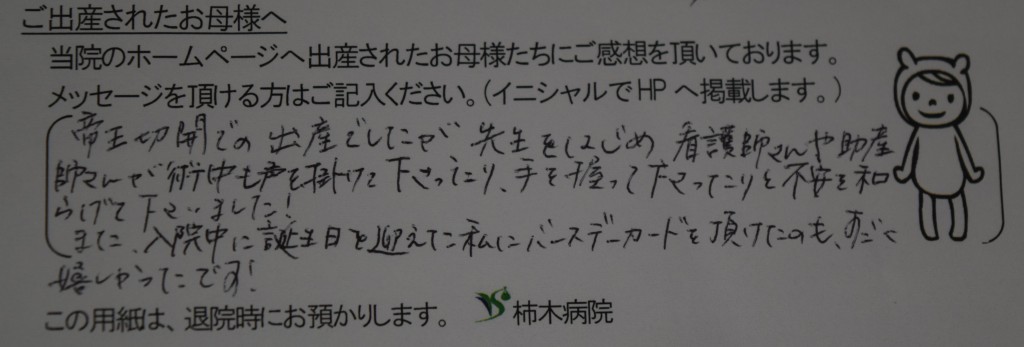 ご出産されたお母様へ
当院のホームページへ出産されたお母様たちにご感想を頂いております。
メッセージを頂ける方はご記入ください。(イニシャルでHPへ掲載します。)
帝王切開での出産でしたが先生をはじめ看護師さんや助産
師さんが術中も声を掛けて下さったり、手を握って下さったりと不安を和
らげて下さいました!
また、入院中に誕生日を迎えた私にバースデーカードを頂けたのも、すごく
嬉しかったです!
この用紙は、退院時にお預かりします。 柿木病院